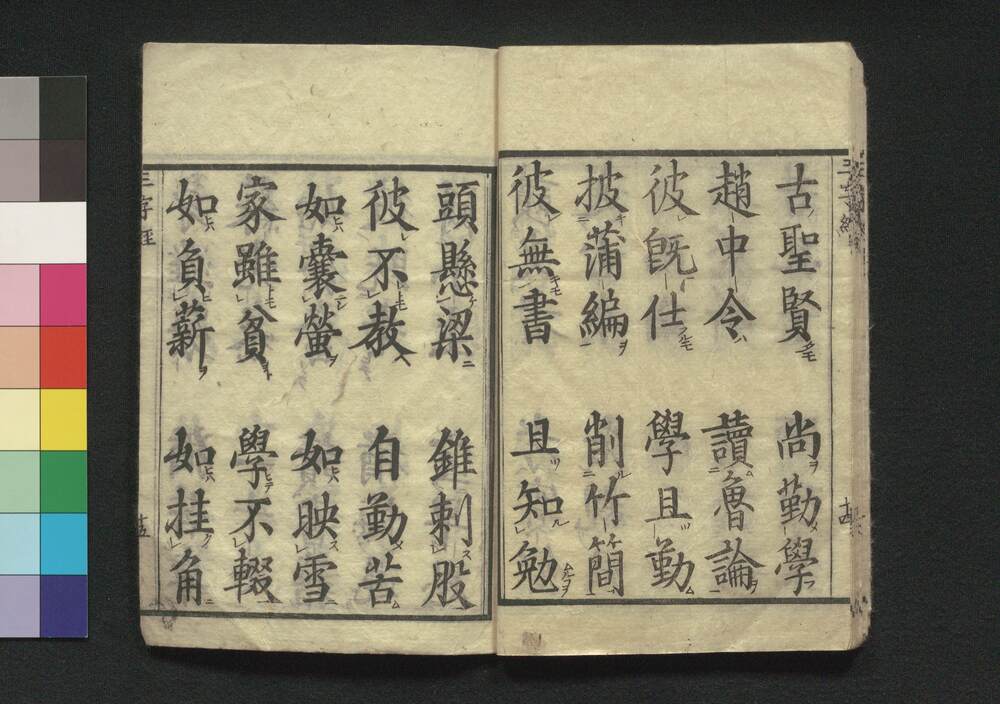 古聖賢 尚勤學
趙中令 讀魯論
彼既仕 學且勤
披蒲編 削竹簡
彼無書 且知勉
頭懸梁 錐刺股
彼不教 自勤苦
如囊螢 如映雪
家雖貧 學不輟
如負薪 如挂角
三字經
十五